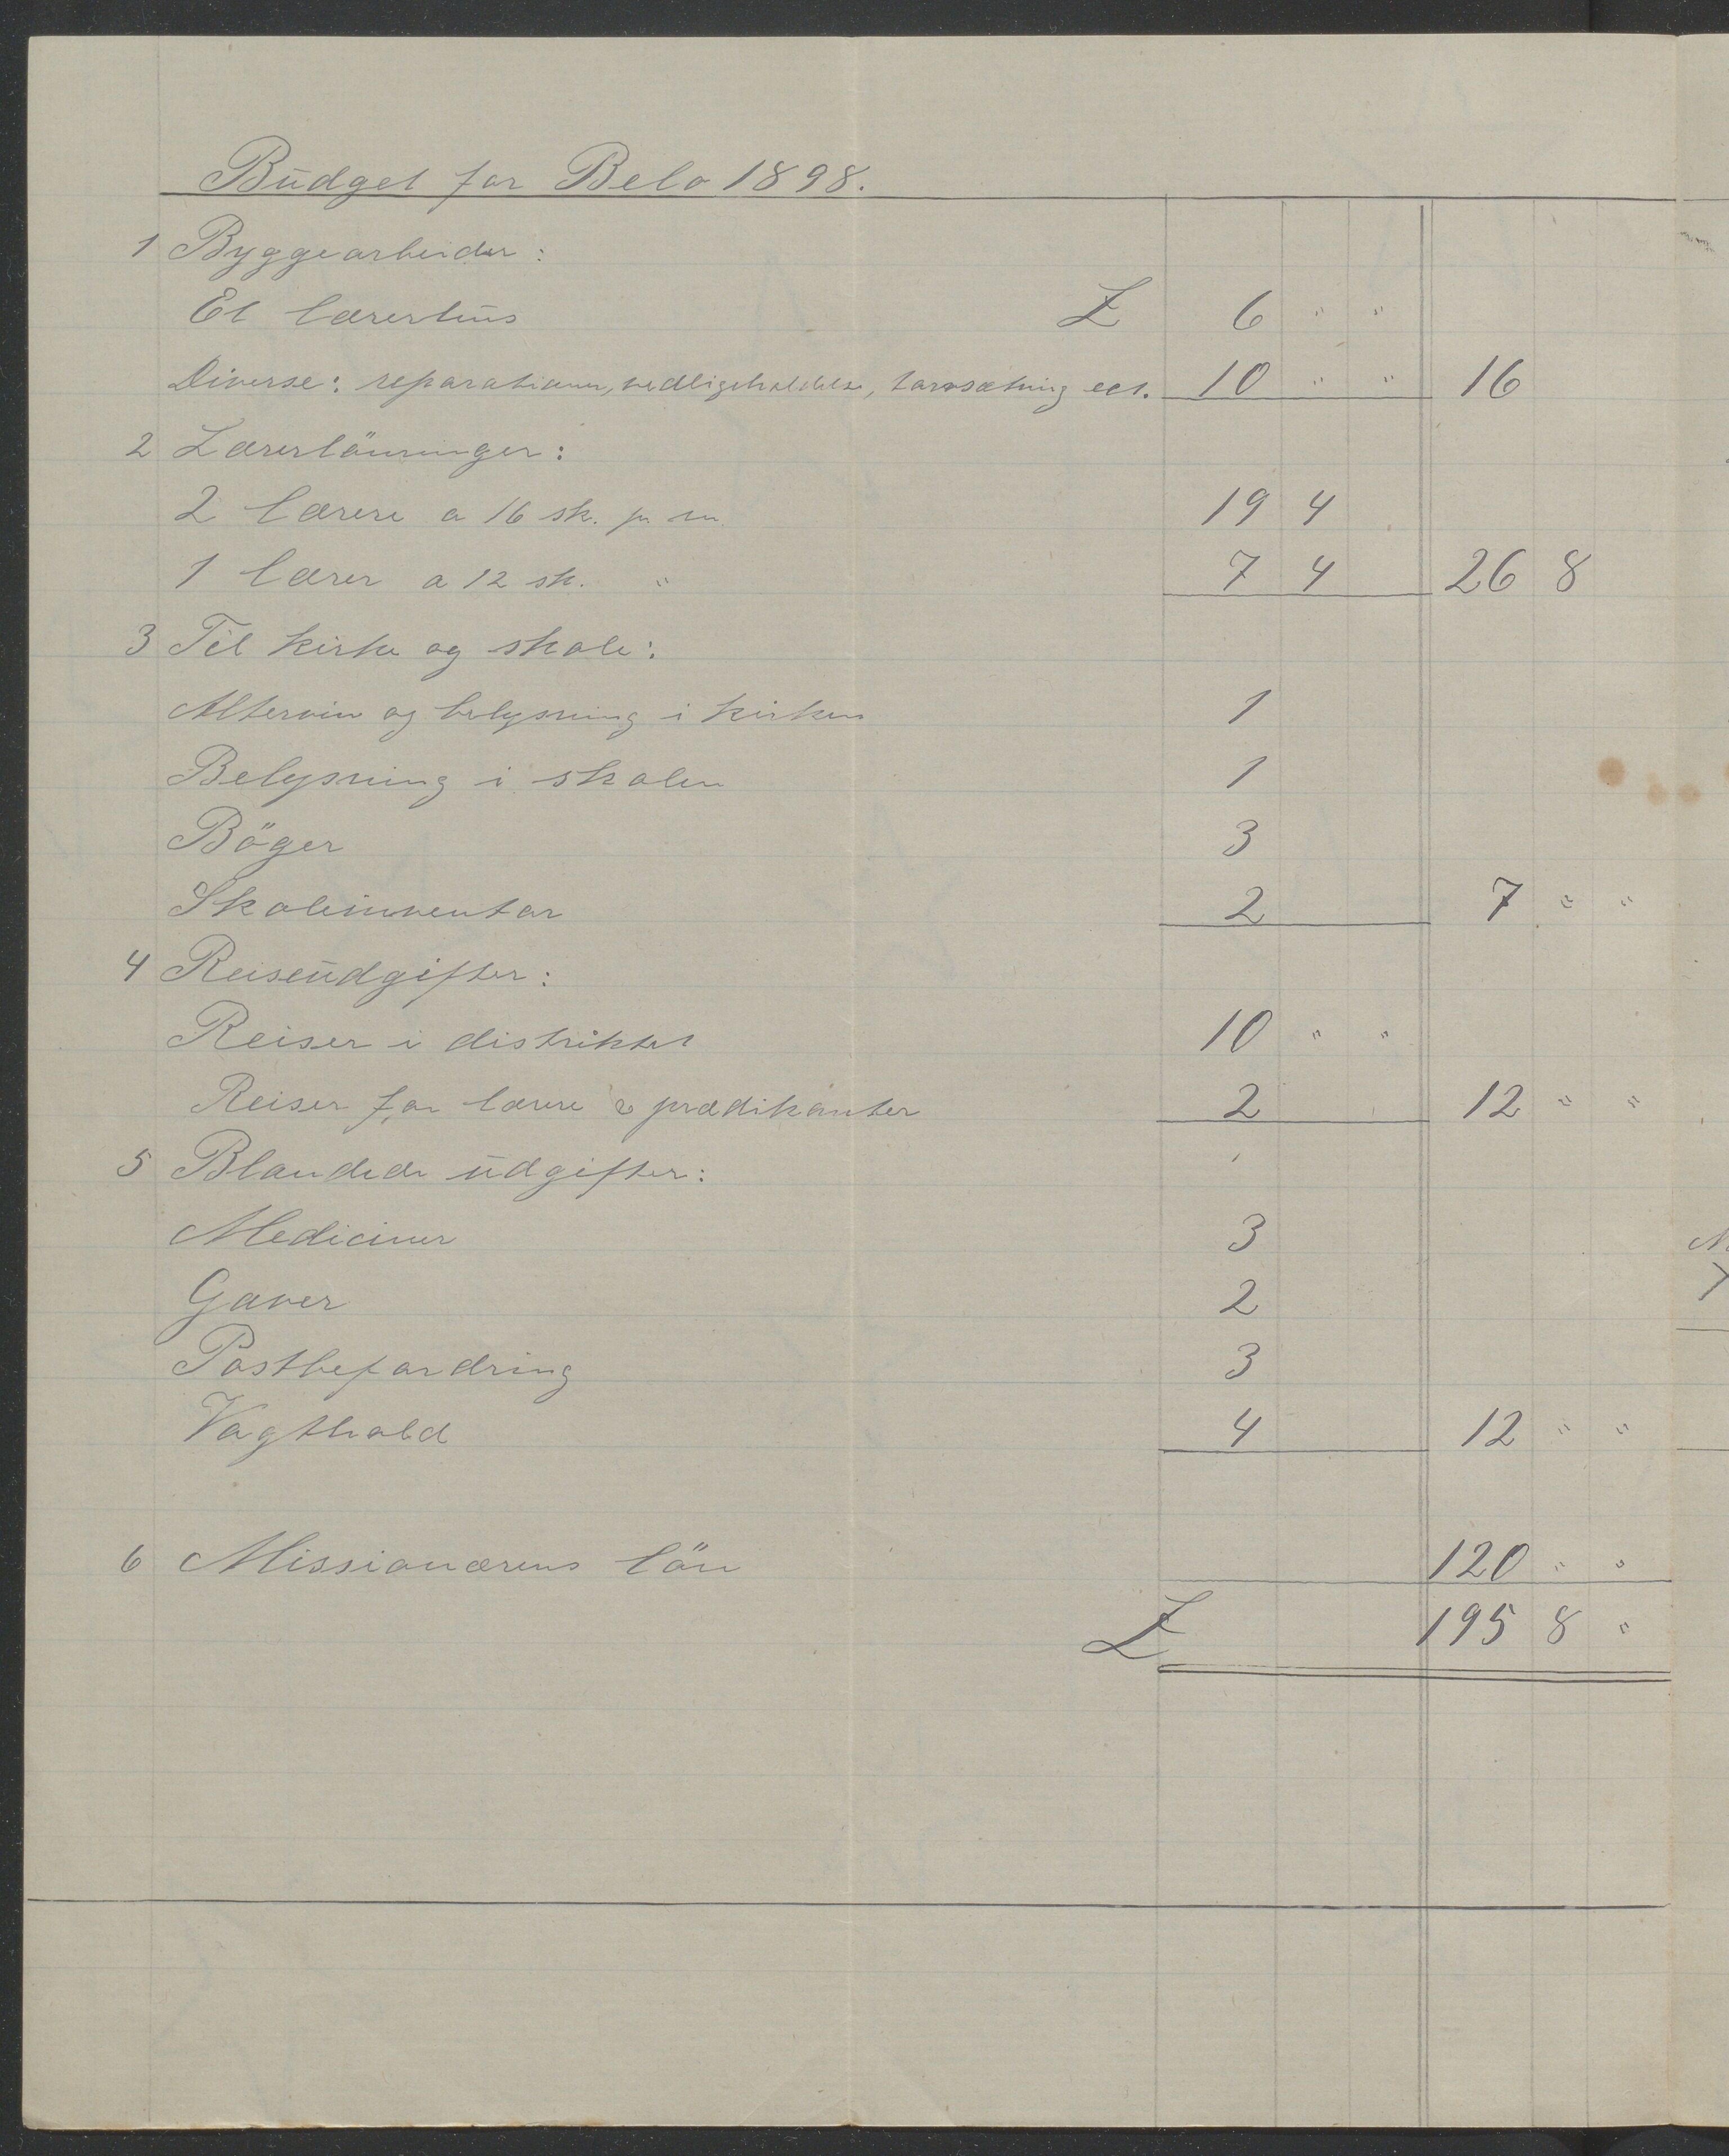 Budget for Belo 1898.
1 Byggearbeider:
Et lærerhus £ 6 " "
Diverse: reparationer, vedligeholdelse, torvsætning ect. 10 " " 16
2 Lærerlönninger:
2 lærere a 16 sh. pr m 19 4
1 lærer a 12 sh. " 7 4 26 8
3 Til kirke og skole:
Altervin og belysning i kirken 1
Belysning i skolen 1
Böger 3
Skoleinventar 2 7 " "
4 Reiseudgifter:
Reiser i distriktet 10 " "
Reiser for lærere & prædikanter 2 12 " "
5 Blandede udgifter:
Mediciner 3
Gaver 2
Postbefordring 3
Vagthold 4 12 " "
6 Missionærens lön 120 " "
£ 195 8 "